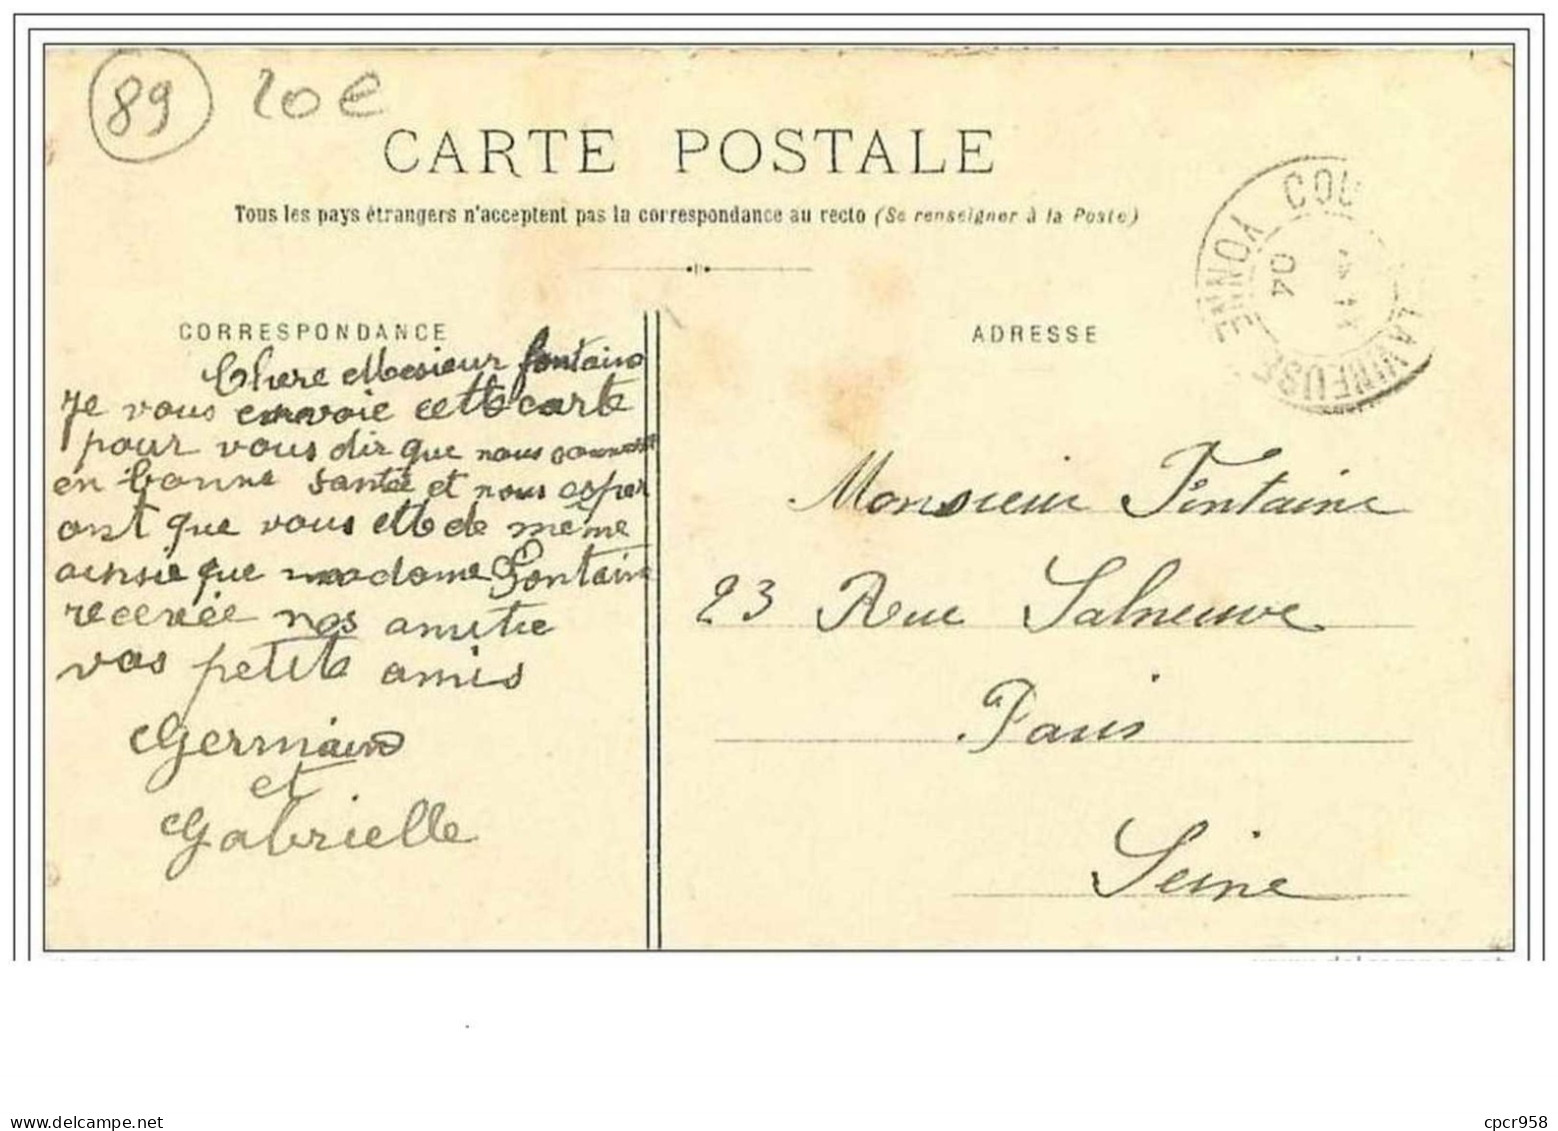 89
20€
CARTE POSTALE
Tous les pays étrangers n'acceptent pas la correspondance au recto (Se renseigner à la Poste)
COU LA VINEUSE YONNE
04
CORRESPONDANCE
ADRESSE
Chere Mesieur fontaine
Je vous envoie cette carte
pour vous dir que nous sommes
en bonne santée et nous esper
ont que vous ette de même
ainsie que madame Fontaine
recevée nos amitie
vos petite amis
Germaine
et
Gabrielle
Monsieur Fontaine
23 Rue Salneuve
Paris
Seine
www.delcampe.net
cpcr958